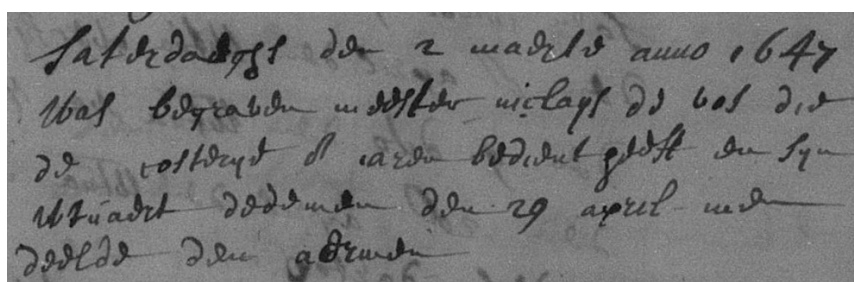 Saterdaeghs den 2 maerte anno 1647
was begraven meester niclays de vos die
de costerye 8 iaren bedient heeft en syn
wtuaert dedemen den 29 april men
deelde den aermen